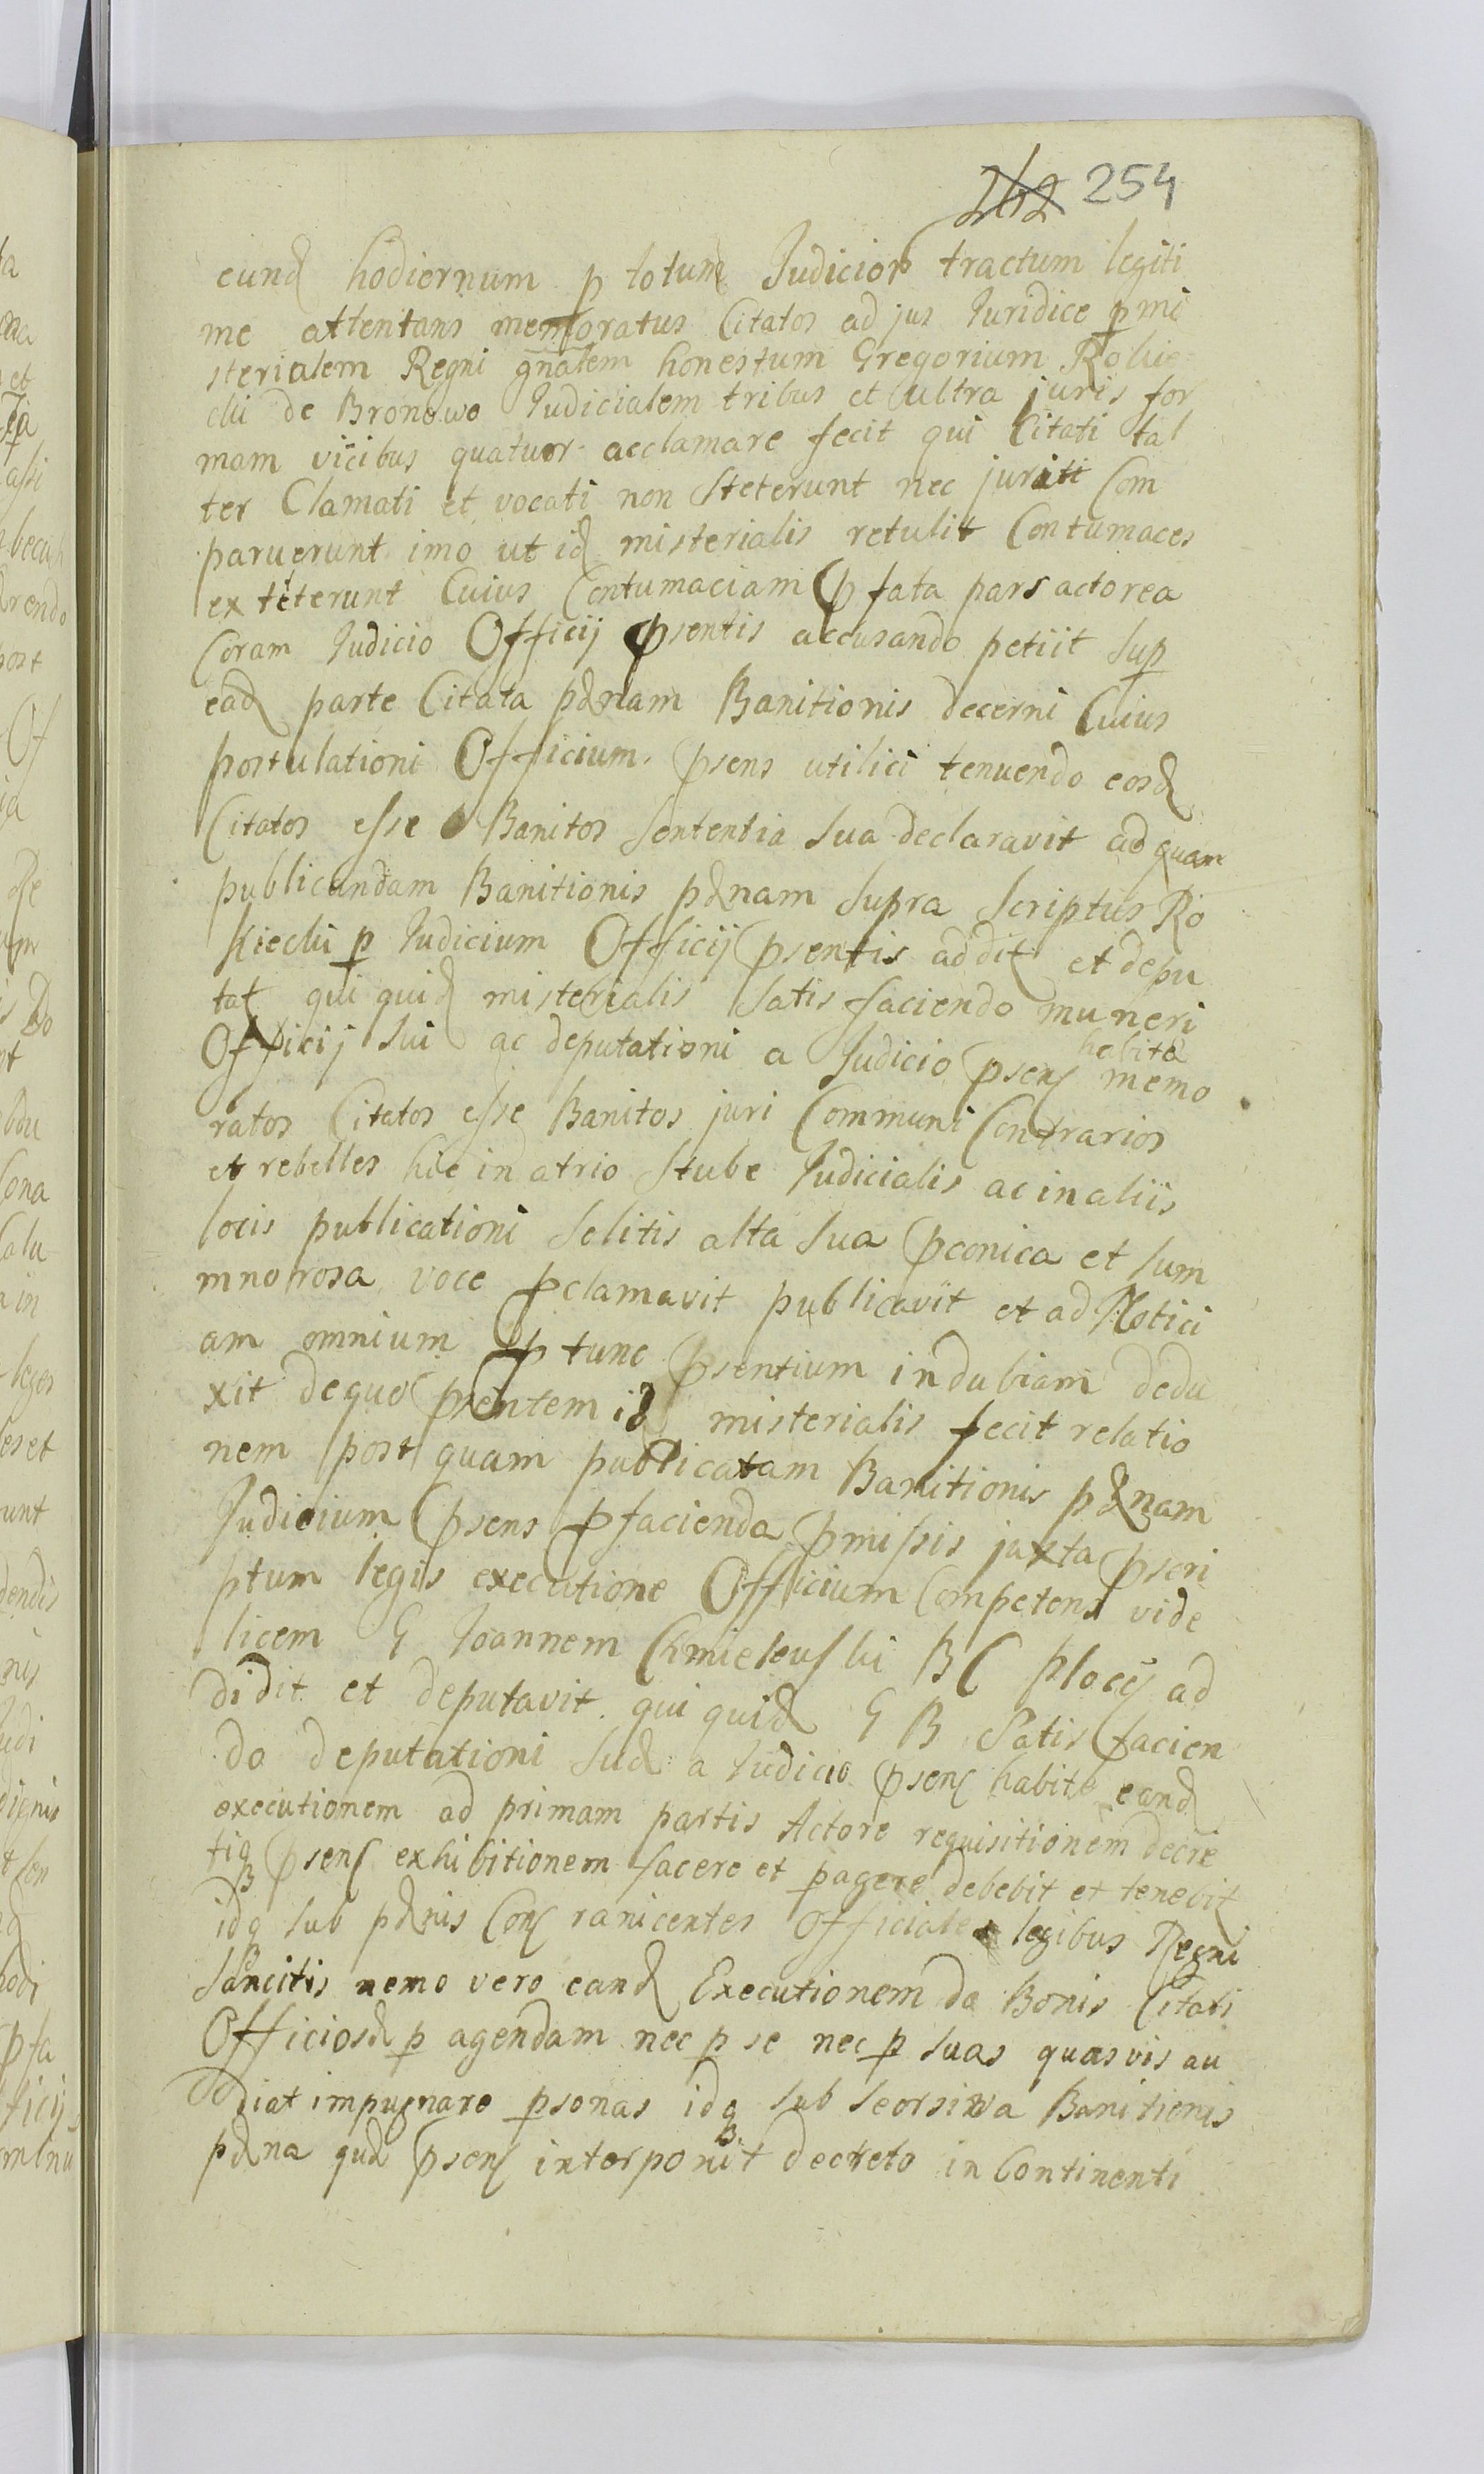 262 254
eund hodiernum p totum Judicior tractum legiti
me attentans memoratus Citatos ad jus Iuridice p mi
sterialem Regni gnalem honestum Gregorium Rokie
cki de Bronowo Iudicialem tribus et ultra juris for
mam vicibus quatuor acclamare fecit qui Citati tal
ter Clamati et vocati non steterunt nec juriti Com
paruerunt imo ut id misterialis retulit Contumaces
exteterunt Cuius Contumaciam p fata pars actorea
Coram Iudicio Officij psentis accusando petiit sup
ead parte Citata pænam Banitionis decerni Cuius
postulationi Officium psens utilici tenuendo eosd
Citatos esse Banitos Sententia sua declaravit ad quam
publicandam Banitionis pænam supra scriptus Ro
kiecki p Iudicium Officij psentis addit et depu
tat qui quid misterialis satis faciendo muneri
Officij sui ac deputationi a Iudicio psens habita memo
ratos Citatos esse Banitos juri Communi Contrarios
et rebelles hic in atrio Stube Iudicialis ac in aliis
locis publicationi solitis alta sua pconica et sum
mno rosa voce pclamavit publicavit et ad Notici
am omnium p tunc psentium indubiam dedu
xit de quo psentem id misterialis fecit relatio
nem post quam publicatam Banitionis pænam
Judicium psens p facienda pmissis juxta pscri
ptum legis executione Officium Competens vide
licem G Ioannem Chmieleuski BC plocij ad
didit et deputavit qui quid G B Satis facien
do deputationi suæ a Iudicio psens habite eand
executionem ad primam partis Actore requisitionem decre
tiq psens exhibitionem facere et pagere debebit et tenebit
idq sub pænis Cons ranicentes Officiales legibus Regni
Sancitis nemo vero eand Executionem da Bonis Citati
Officiosæ p agendam nec p se nec p suas quasvis au
diat impugnare psonas idq sub seorsiva Banitionis
pæna quæ psens interponit decreto in Continenti